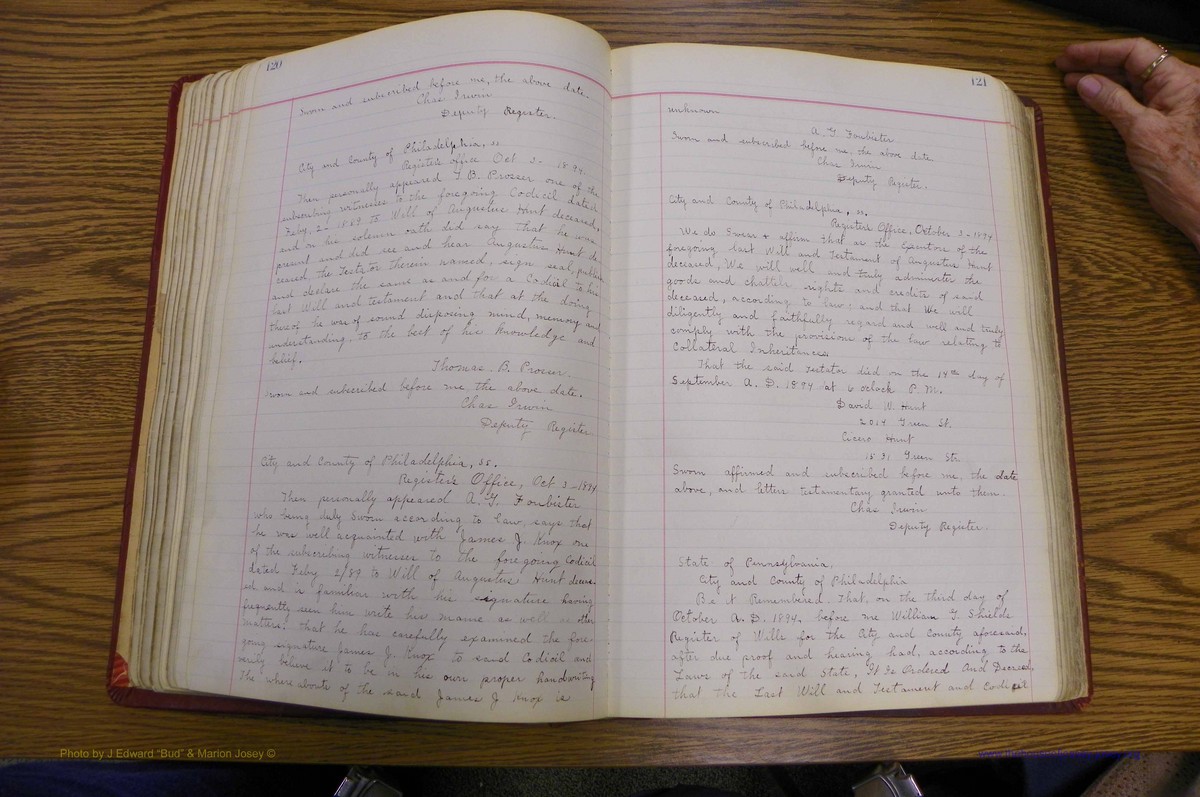 120
Sworn and subscribed before me, the above date.
Chas Irwin
Deputy Register.
City and County of Philadelphia, ss
Register's office Oct 3- 1894.
Then personally appeared T. B. Prosser one of the
subscribing witnesses to the foregoing Codicil dated
Feby. 2- 1889 to Will of Augustus Hunt deceased,
and on his solemn oath did say that he was
present and did see and hear Augustus Hunt de
ceased, the Testator therein named, sign seal, publish
and declare the same as and for a Codicil to his
last Will and testament and that at the doing
thereof he was of sound disposing mind, memory and
understanding to the best of his knowledge and
belief.
Thomas. B. Prosser.
Sworn and subscribed before me the above date.
Chas Irwin
Deputy Register
City and County of Philadelphia, ss.
Register's Office, Oct 3-1894
Then personally appeared A. G. Foubister
who being duly sworn according to law, says that
he was well acquainted with James J. Knox one
of the subscribing witnesses to the foregoing Codicil
dated Feby. 2/89 to Will of Augustus Hunt deceas-
ed, and is familiar with his signature having
frequently seen him write his name as well as other
matters: that he has carefully examined the fore-
going signature James J. Knox to said Codicil and
verily believe it to be in his own proper handwriting
The where abouts of the said James J. Knox is
121
unknown
A. G. Foubister
Sworn and subscribed before me, the above date
Chas Irwin
Deputy Register.
City and County of Philadelphia, ss.
Registers Office, October 3-1894
We do Swear & affirm that as the Executors of the
foregoing last Will and Testament of Augustus Hunt
deceased, We will well and truly administer the
goods and chattels rights and credits of said
deceased, according to law: and that We will
diligently and faithfully regard and well and truly
comply with the provision of the law relating to
Collateral Inheritances
That the said Testator died on the 14th day of
September A. D. 1894 at 6 oclock P. M.
David W. Hunt
2014 Green St.
Cicero Hunt
1531 Green Str
Sworn affirmed and subscribed before me, the date
above, and letters testamentary granted unto them.
Chas Irwin
Deputy Register.
State of Pennsylvania,
City and County of Philadelphia
Be it Remembered, That, on the third day of
October A. D. 1894, before me William G. Shields
Register of Wills for the City and County aforesaid,
after due proof and hearing had, according to the
Laws of the said State, It Is Ordered And Decreed,
that the Last Will and Testament and Codicil
Photo by J Edward "Bud" & Marion Josey ©